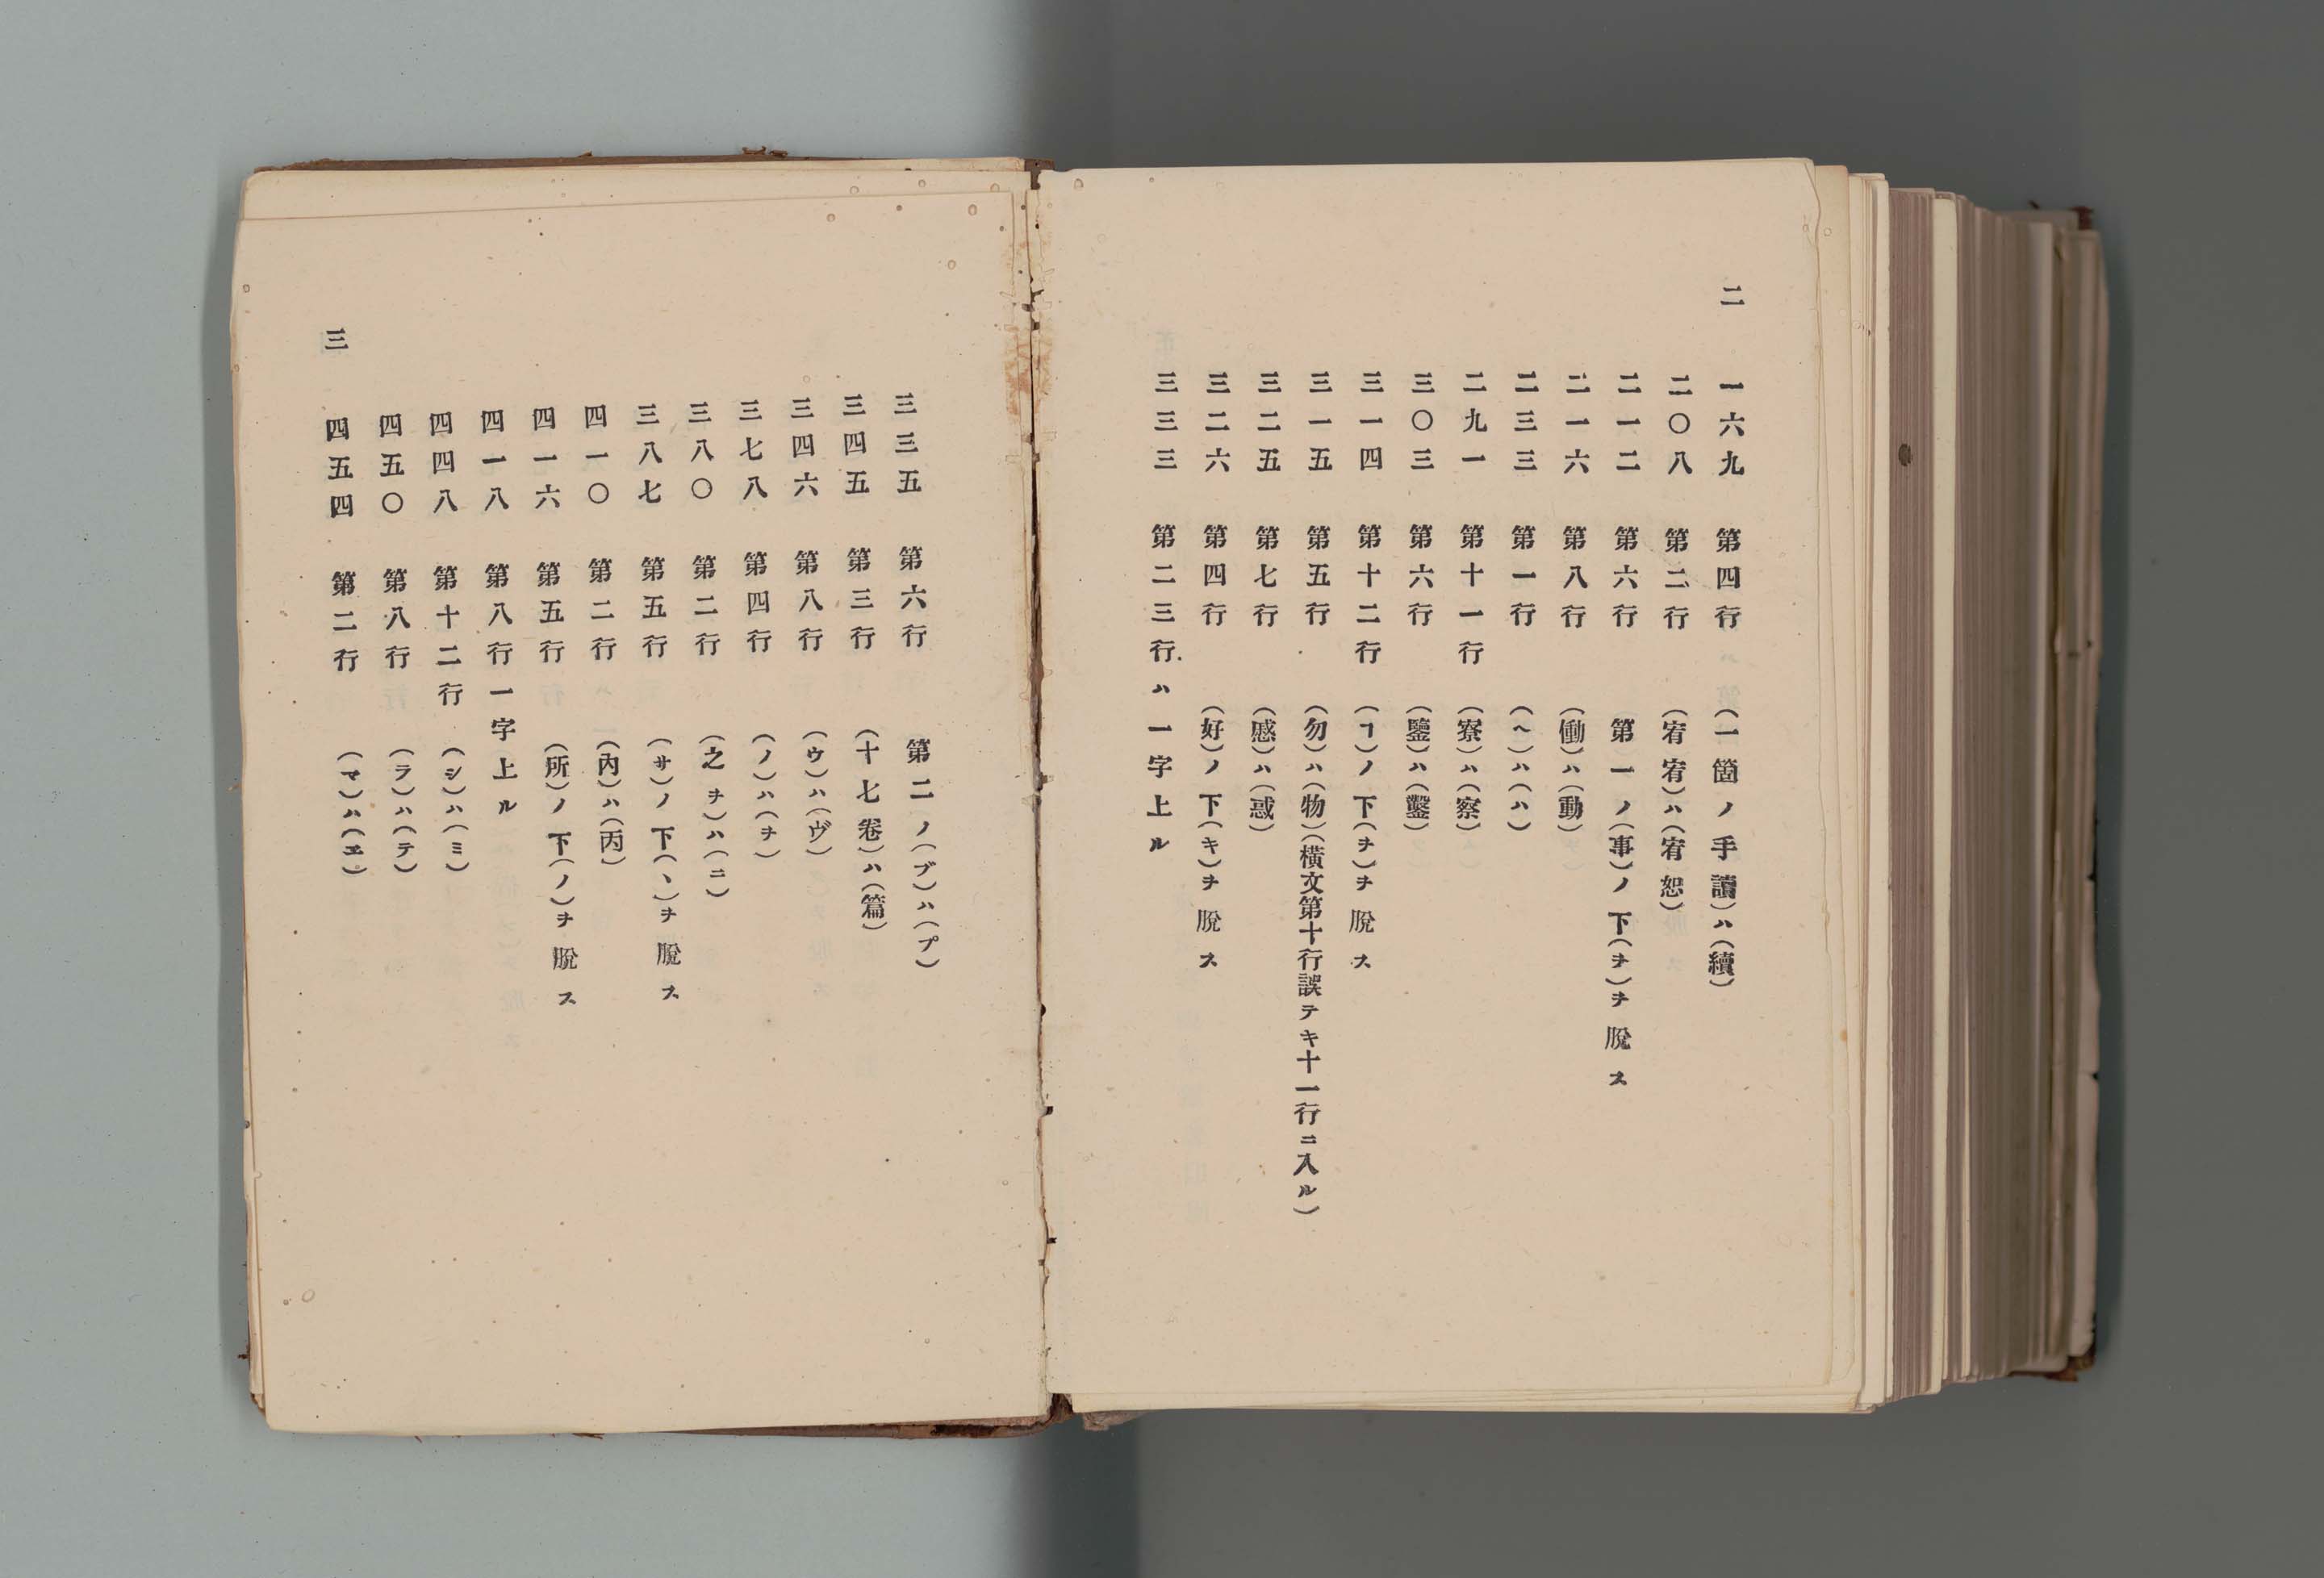 二
一六九 第四行 （一箇ノ手讀）ハ（續）
二〇八 第二行 （宥宥）ハ（宥恕）
二一二 第六行 第一ノ（事）ノ下（ヲ）ヲ脫ス
二一六 第八行 （働）ハ（動）
二三三 第一行 （ヘ）ハ（ハ）
二九一 第十一行 （寮）ハ（察）
三〇三 第六行 （鑒）ハ（鑿）
三一四 第十二行 （ヿ）ノ下（ヲ）ヲ脫ス
三一五 第五行 （勿）ハ（物）（橫文第十行誤テキ十一行ニ入ル）
三二五 第七行 （慼）ハ（惑）
三二六 第四行 （好）ノ下（キ）ヲ脫ス
三三三 第二三行ハ一字上ル
三三五 第六行 第二ノ（ブ）ハ（プ）
三四五 第三行 （十七卷）ハ（篇）
三四六 第八行 （ウ）ハ（ヴ）
三七八 第四行 （ノ）ハ（ヲ）
三八〇 第二行 （之ヲ）ハ（ニ）
三八七 第五行 （サ）ノ下（ヽ）ヲ脫ス
四一〇 第二行 （內）ハ（丙）
四一六 第五行 （所）ノ下（ノ）ヲ脫ス
四一八 第八行一字上ル
四四八 第十二行 （シ）ハ（ミ）
四五〇 第八行 （ラ）ハ（テ）
四五四 第二行 （マ）ハ（ヱ）
三